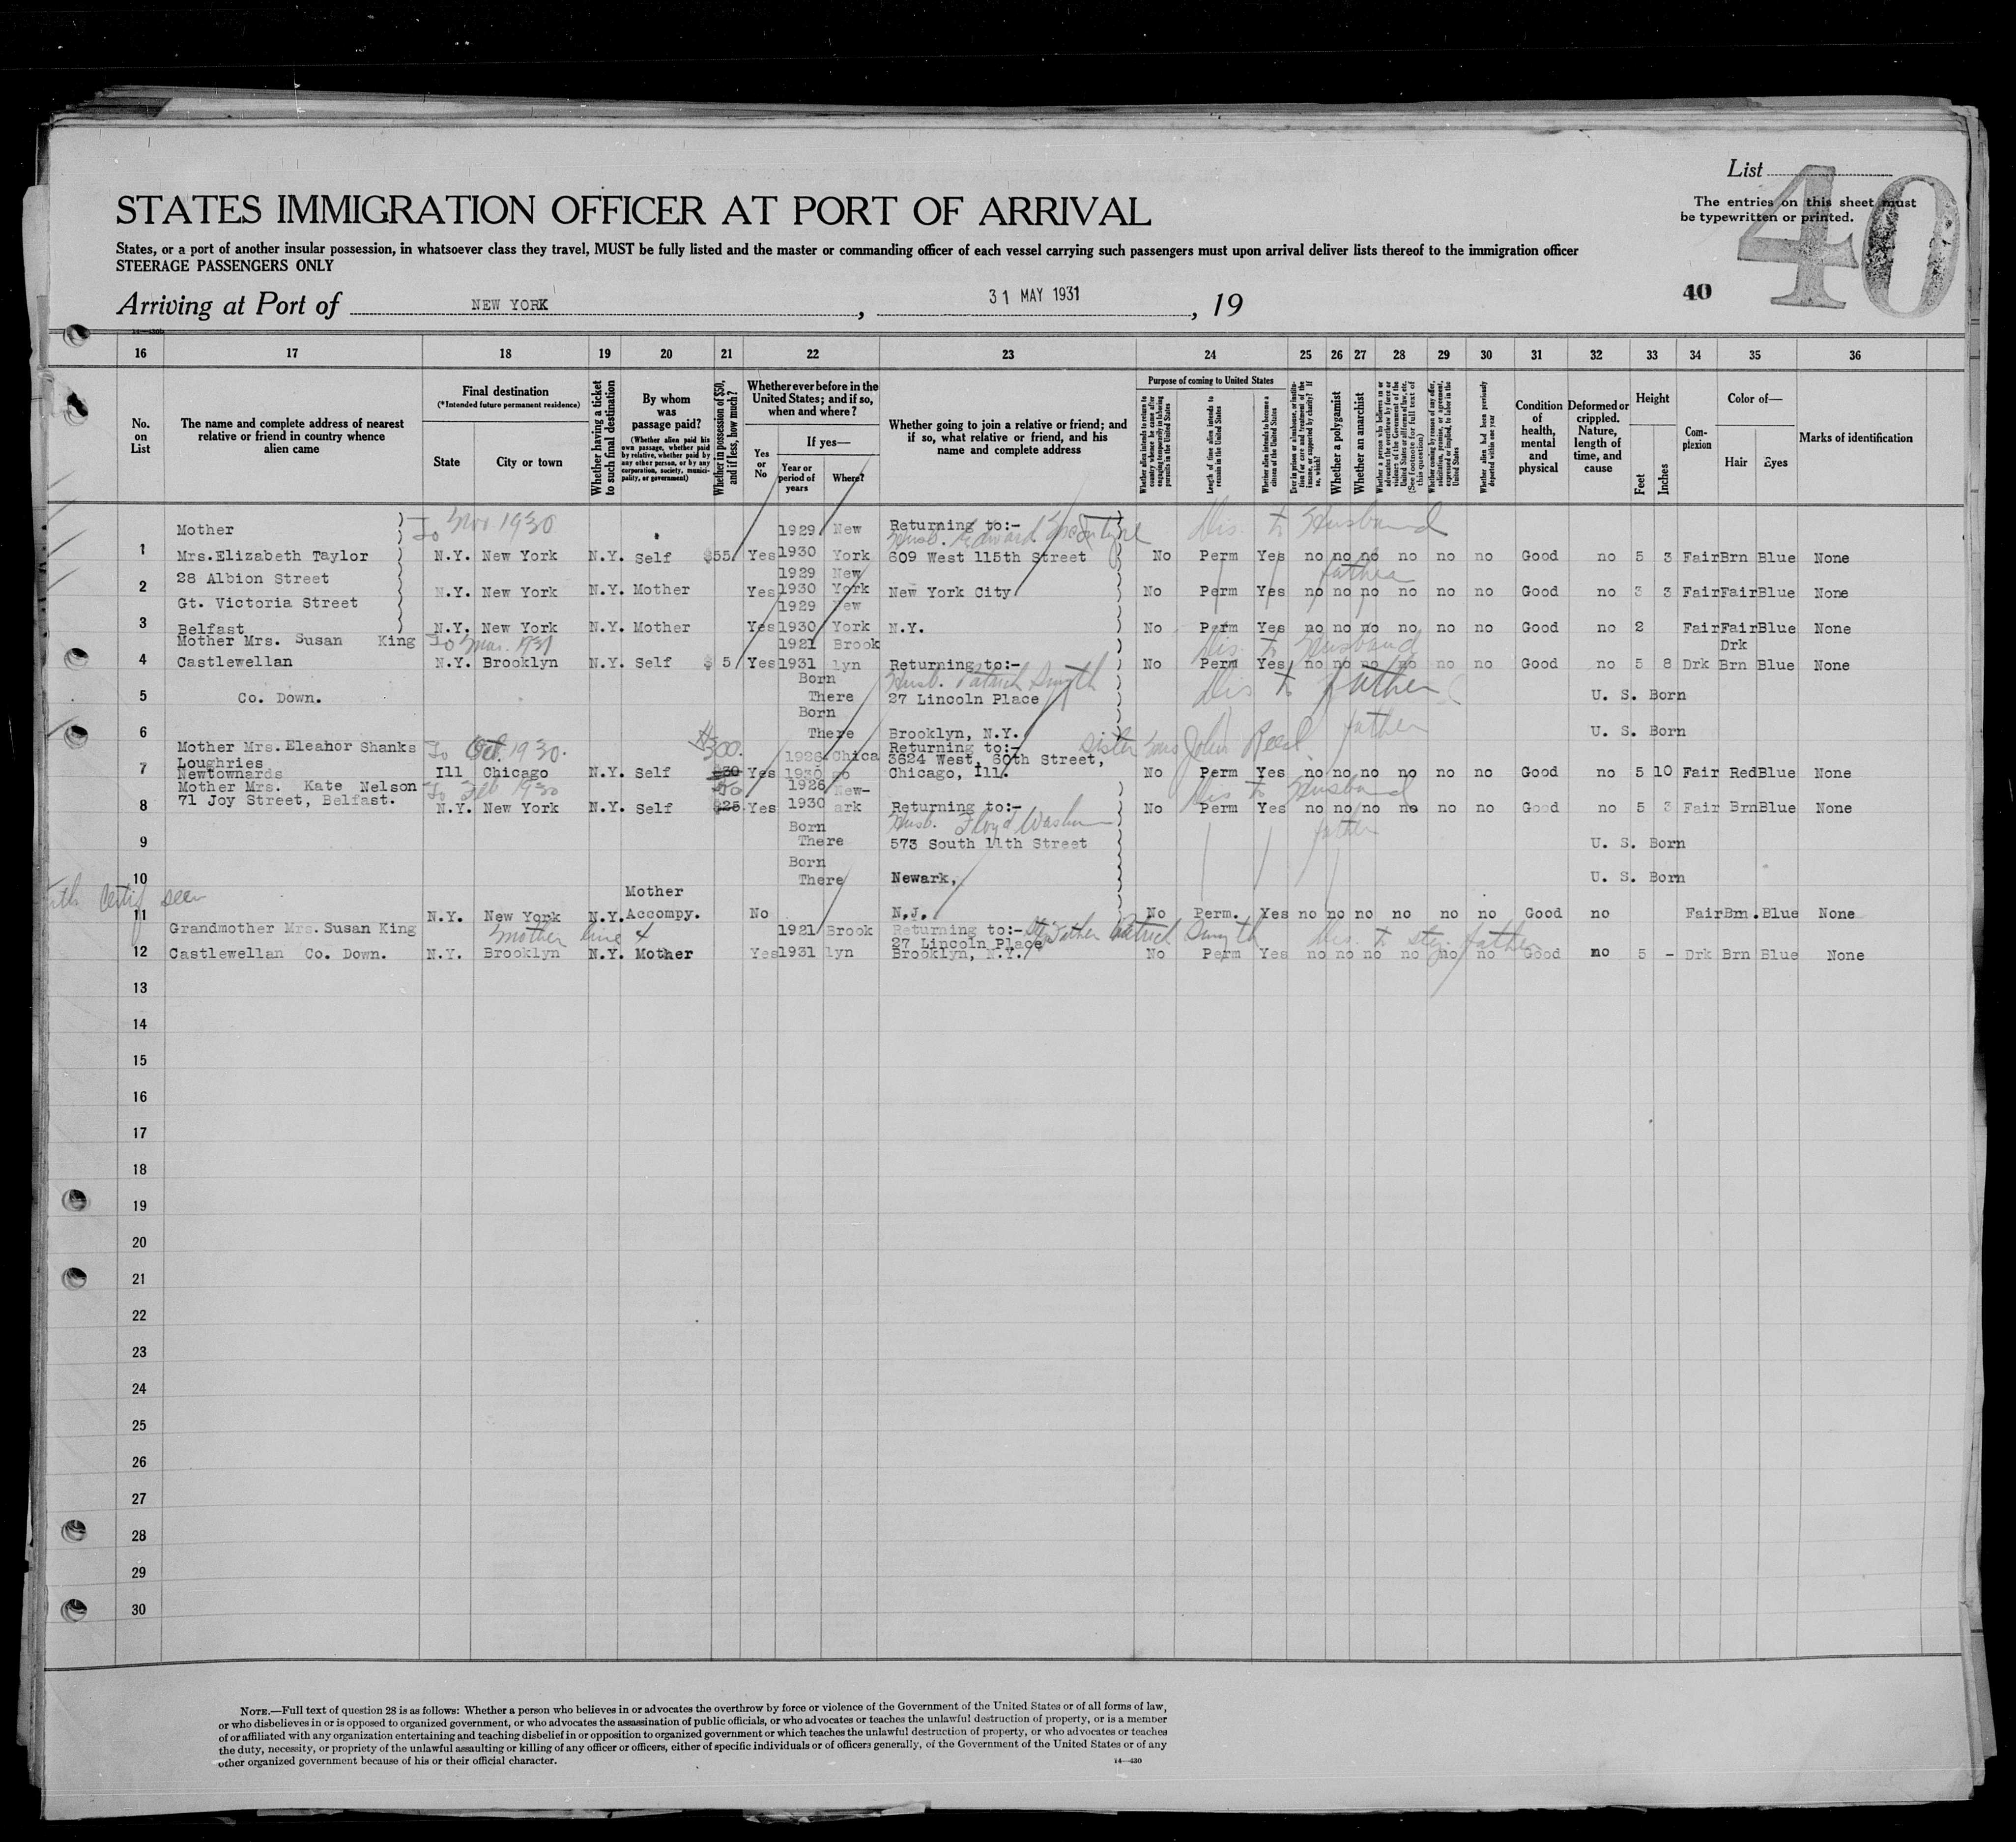 List
40
The entries on this sheet must
be typewritten or printed.
STATES IMMIGRATION OFFICER AT PORT OF ARRIVAL
States, or a port of another insular possession, in whatsoever class they travel, MUST be fully listed and the master or commanding officer of each vessel carrying such passengers must upon arrival deliver lists thereof to the immigration officer
STEERAGE PASSENGERS ONLY
40
Arriving at Port of NEW YORK , 31 MAY 1931 , 19
14—430b
16 17 18 19 20 21 22 23 24 25 26 27 28 29 30 31 32 33 34 35 36
No. on List
The name and complete address of nearest relative or friend in country whence alien came
Final destination
(*Intended future permanent residence)
State City or town
Whether having a ticket to such final destination
By whom was passage paid?
(Whether alien paid his own passage, whether paid by relative, whether paid by any other person, or by any corporation, society, municipality, or government)
Whether in possession of $50, and if less, how much?
Whether ever before in the United States; and if so, when and where?
Yes or No
If yes—
Year or period of years
Where?
Whether going to join a relative or friend; and if so, what relative or friend, and his name and complete address
Purpose of coming to United States
Whether alien intends to return to country whence he came after engaging temporarily in laboring pursuits in the United States
Length of time alien intends to remain in the United States
Whether alien intends to become a citizen of the United States
Ever in prison or almshouse, or institution for care and treatment of the insane, or supported by charity? If so, which?
Whether a polygamist
Whether an anarchist
Whether a person who believes in or advocates the overthrow by force or violence of the Government of the United States or all forms of law, etc. (See footnote for full text of this question)
Whether coming by reason of any offer, solicitation, promise, or agreement, expressed or implied, to labor in the United States
Whether alien had been previously deported within one year
Condition of health, mental and physical
Deformed or crippled. Nature, length of time, and cause
Height
Feet Inches
Complexion
Color of—
Hair Eyes
Marks of identification
Mother To Nov. 1930 1929 New Returning to:- Dis. to Husband
Husb. Edward
1 Mrs.Elizabeth Taylor N.Y. New York N.Y. Self $55 Yes 1930 York 609 West 115th Street No Perm Yes no no no no no no Good no 5 3 Fair Brn Blue None
28 Albion Street 1929 New father
2 N.Y. New York N.Y. Mother Yes 1930 York New York City No Perm Yes no no no no no no Good no 3 3 Fair Fair Blue None
Gt. Victoria Street 1929 New
3 Belfast N.Y. New York N.Y. Mother Yes 1930 York N.Y. No Perm Yes no no no no no no Good no 2 Fair Fair Blue None
Mother Mrs. Susan King To Mar. 1931 1921 Brook Dis. to Husband Drk
4 Castlewellan N.Y. Brooklyn N.Y. Self $ 5 Yes 1931 lyn Returning to:- No Perm Yes no no no no no no Good no 5 8 Drk Brn Blue None
Born Husb. Patrick Smyth Dis to father
5 Co. Down. There 27 Lincoln Place U. S. Born
Born father
6 There Brooklyn, N.Y. U. S. Born
Mother Mrs.Eleanor Shanks To Oct. 1930. $300. Returning to:- Sister Mrs John Reed
Loughries 1926 Chica 3624 West, 60th Street,
7 Newtownards Ill Chicago N.Y. Self $30 Yes 1930 go Chicago, Ill. No Perm Yes no no no no no no Good no 5 10 Fair Red Blue None
Mother Mrs. Kate Nelson To Feb 1930 50 1926 New- Dis to Husband
8 71 Joy Street, Belfast. N.Y. New York N.Y. Self $25 Yes 1930 ark Returning to:- No Perm Yes no no no no no no Good no 5 3 Fair Brn Blue None
Born Husb. Floyd father
9 There 573 South 11th Street U. S. Born
Born
10 There Newark, U. S. Born
Certif seen Mother
11 N.Y. New York N.Y. Accompy. No N.J. No Perm. Yes no no no no no no Good no Fair Brn. Blue None
Grandmother Mrs.Susan King mother line 4 1921 Brook Returning to:- Step Father Patrick Smyth Dis. to step father
27 Lincoln Place
12 Castlewellan Co. Down. N.Y. Brooklyn N.Y. Mother Yes 1931 lyn Brooklyn, N.Y. No Perm Yes no no no no no no Good no 5 - Drk Brn Blue None
13
14
15
16
17
18
19
20
21
22
23
24
25
26
27
28
29
30
NOTE.—Full text of question 28 is as follows: Whether a person who believes in or advocates the overthrow by force or violence of the Government of the United States or of all forms of law,
or who disbelieves in or is opposed to organized government, or who advocates the assassination of public officials, or who advocates or teaches the unlawful destruction of property, or is a member
of or affiliated with any organization entertaining and teaching disbelief in or opposition to organized government or which teaches the unlawful destruction of property, or who advocates or teaches
the duty, necessity, or propriety of the unlawful assaulting or killing of any officer or officers, either of specific individuals or of officers generally, of the Government of the United States or of any
other organized government because of his or their official character.
14—430